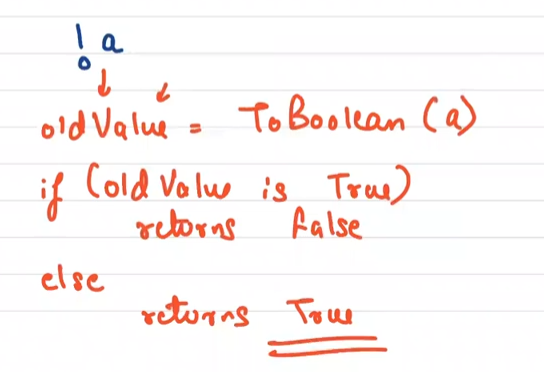 !a
oldValue = ToBoolean (a)
if (oldValue is True)
returns false
else
returns True